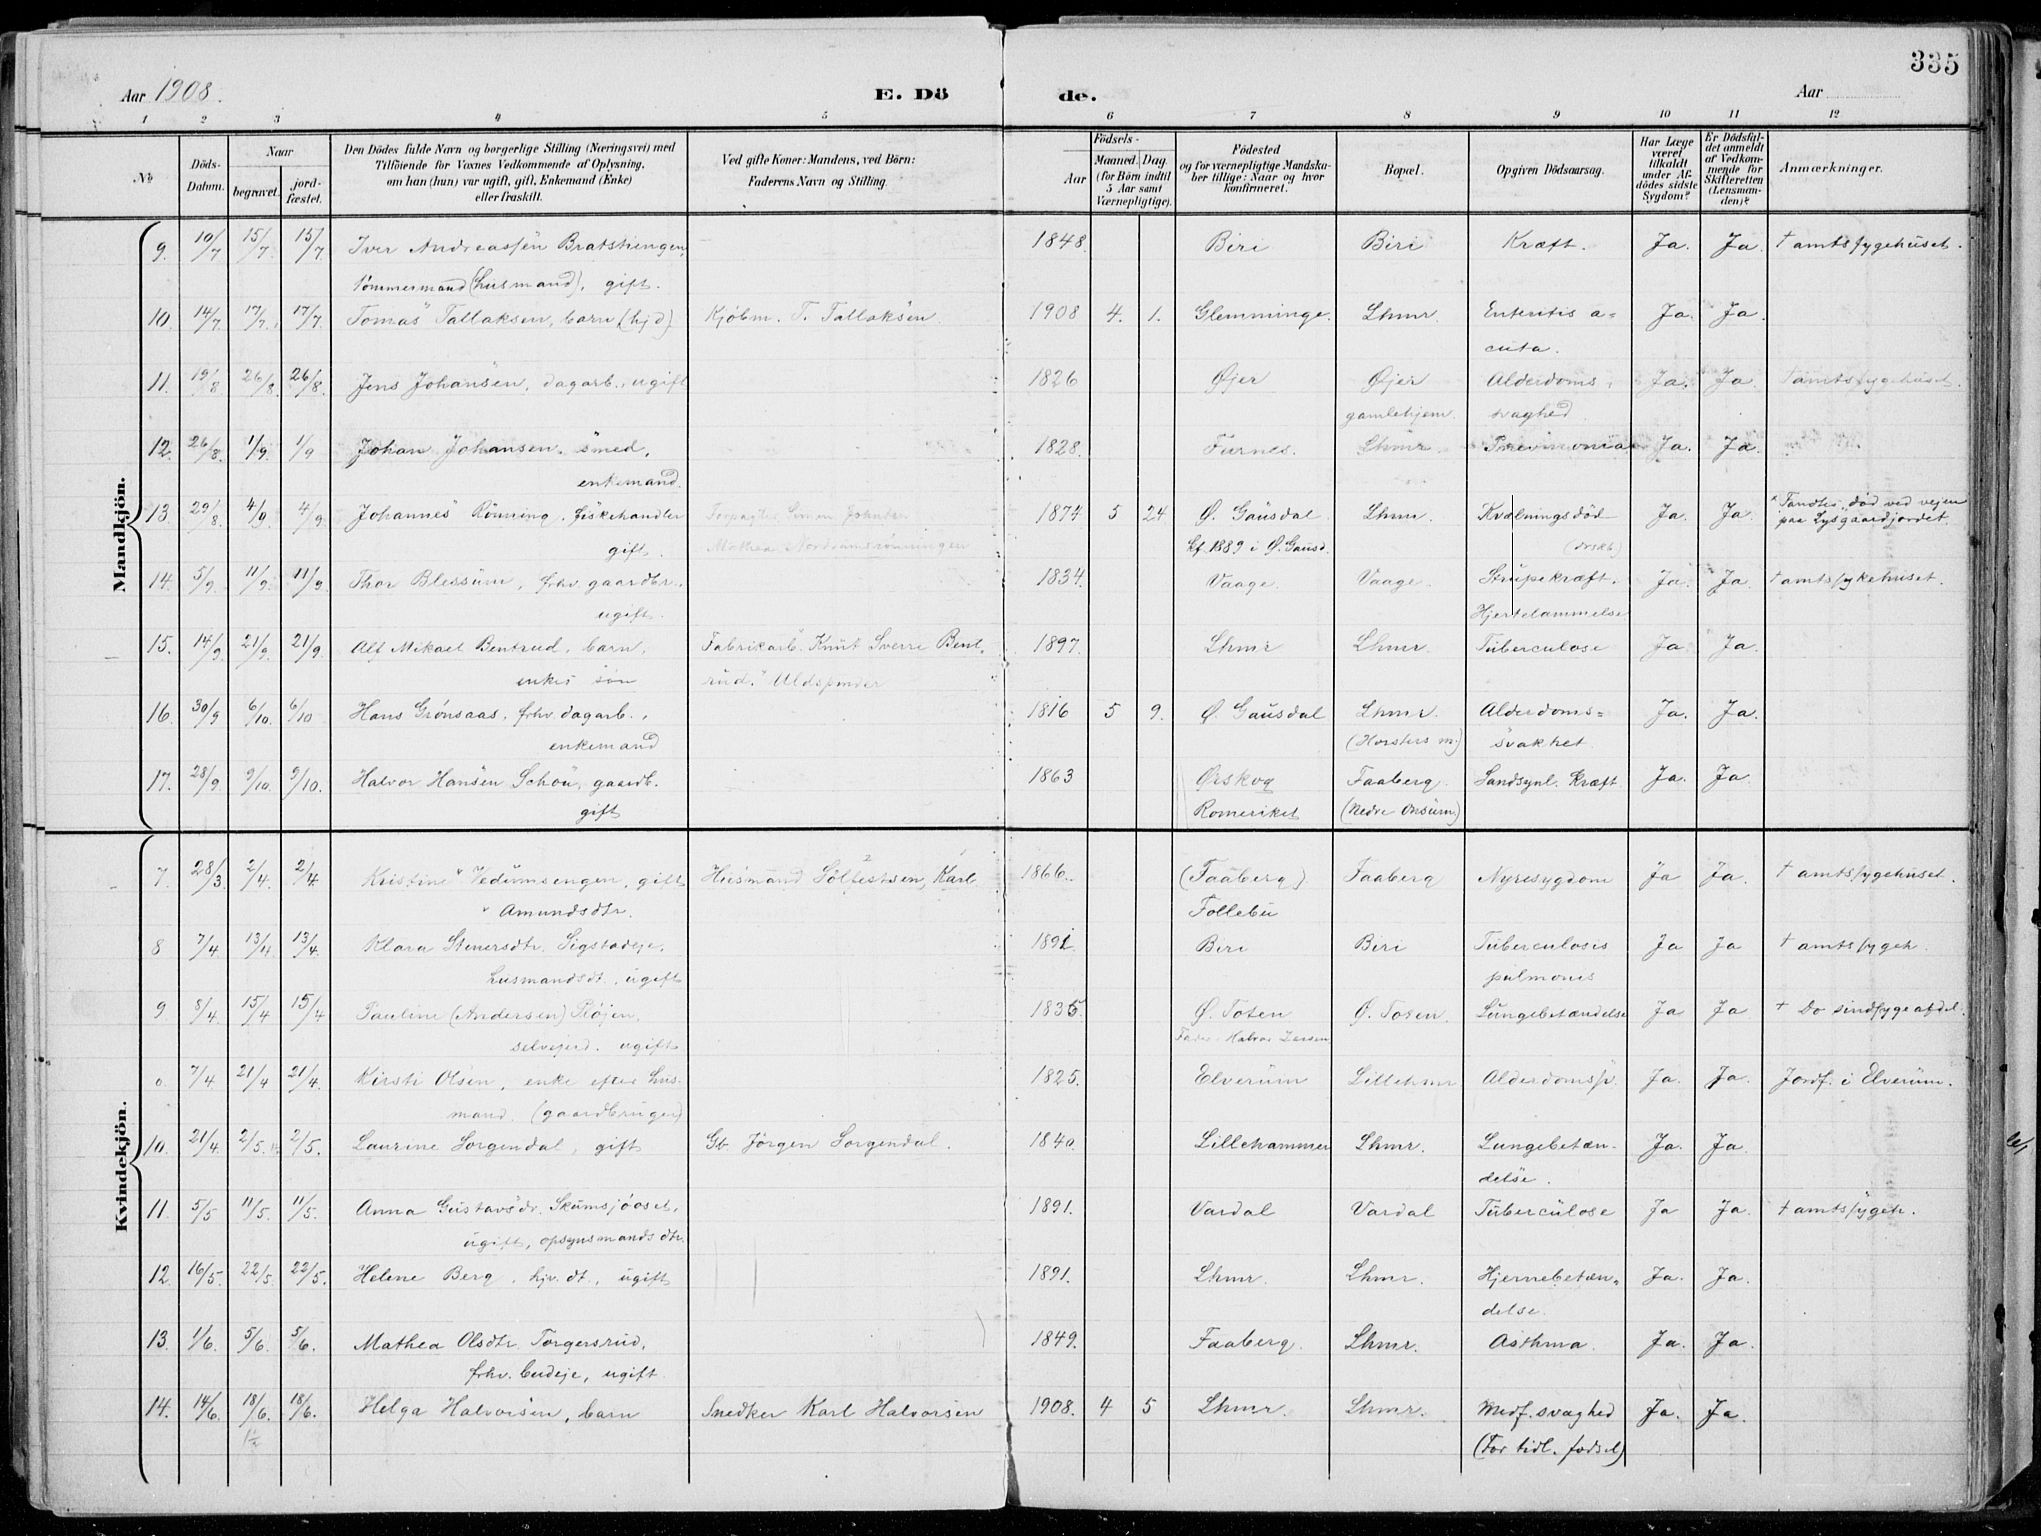 335
Aar 1908.
E. Dö
de.
Aar
1 2 3 4 5 6 7 8 9 10 11 12
No
Döds-Datum.
Naar
begravet.
jord-fæstet.
Den Dödes fulde Navn og borgerlige Stilling (Næringsvei) med
Tilföiende for Voxnes Vedkommende af Oplysning.
om han (hun) var ugift, gift, Enkemand (Enke)
eller fraskilt.
Ved gifte Koner: Mandens, ved Börn:
Faderens Navn og Stilling.
Födsels-
Aar
Maaned. Dag.
(for Börn indtil
5 Aar samt
Værnepligtige).
Födested
og for værnepligtige Mandska-
ber tillige: Naar og hvor
konfirmeret.
Bopæl.
Opgiven Dödsaarsag.
Har Læge
været
tilkaldt
under Af-
dödes sidste
Sygdom?
Er Dödsfal-
det anmeldt
af Vedkom-
mende for
Skifteretten
(Lensman-
den)?
Anmærkninger.
Mandkjön.
9. 10/7 15/7 15/7 Iver Andreassen Bratstiengen, 1848. Biri Biri Kræft. Ja. Ja. † amtssygehuset.
Tömmermand (husmand), gift.
10. 14/7 17/7 17/7 Tomas Tallaksen, barn (hjd) Kjøbm. T. Tallaksen 1908 4. 1. Glemminge. Lhmr. Enteritis a-
cuta. Ja. Ja.
11. 19/8 26/8 26/8 Jens Johansen, dagarb., ugift 1826 Øjer Øjer Alderdoms- Ja. Ja † amtssygehuset.
gamlehjem. svaghed
12. 26/8 1/9 1/9 Johan Johansen, smed, 1828. Furnes. Lhmr. Pneumonia Ja. Ja.
enkemand.
13. 29/8 4/9 4/9 Johannes Rönning, fiskehandler 1874 5 24 Ø. Gausdal Lhmr. Kvælningsdöd Ja. Ja. Fandtes död ved vejen
paa Lysgaardjordet.
gift. Mathea Nordrumsrønningen kf. 1889 i Ø. Gausd.
14. 5/9 11/9 11/9 Thor Blessum, frhv. gaardbr., 1834. Vaage. Vaage. Strupekræft. Ja. Ja † amtssykehuset.
ugift. Hjertelammelse
15. 14/9 21/9 21/9 Alf Mikael Bentrud, barn, Fabrikarb. Knut Sverre Bent- 1897. Lhmr Lhmr. Tuberculose Ja Ja.
enkes sön rud. Uldspinder
16. 30/9 6/10. 6/10 Hans Grønsaas, frhv. dagarb., 1816 5 9. Ø. Gausdal Lhmr. Alderdoms- Ja. Ja.
enkemand (Horsters m.) svakhet
17. 28/9 9/10. 9/10. Halvor Hansen Schou, gaardb. 1863 Ørskog Faaberg Sandsynl. Kræft Ja. Ja.
gift Romeriket (Nedre Onsum)
Kvindekjön.
7. 28/3 2/4. 2/4. Kristine Vedumsengen, gift Husmand Solfestsen, Karl 1866. (Faaberg) Faaberg Nyresygdom Ja Ja. † amtssygehuset.
Amundsdtr. Follebu
8 7/4. 13/4 13/4. Klara Stenersdtr. Sigstadeje, 1891. Biri Biri Tuberculosis Ja Ja † amtssygeh.
husmandsdt., ugift pulmones
9 8/4. 15/4 15/4 Pauline (Andersen) Röjen, 1835 Ø. Toten Ø. Toten. Lungebetændelse Ja Ja † Do sindssygeafdel.
selvejerd. ugift Halvor Larsen
o. 7/4 21/4 21/4. Kirsti Olsen, enke efter hus- 1825. Elverum Lillehmr Alderdomssv. Ja. Ja. Jordf. i Elverum.
mand. (gaardbruger)
10. 21/4. 2/5. 2/5. Laurine Sorgendal, gift Gb. Jörgen Sorgendal. 1840. Lillehammer Lhmr. Lungebetæn- Ja. Ja.
delse.
11. 5/5 11/5. 11/5. Anna Gustavsdr. Skumsjöoset, 1891. Vardal Vardal Tuberculose Ja Ja. † amtssygeh.
ugift, opsynsmandsdtr.
12. 16/5. 22/5. 22/5. Helene Berg, hjv. dt., ugift 1891. Lhmr. Lhmr. Hjernebetæn- Ja. Ja.
delse.
13. 1/6. 5/6. 5/6. Mathea Olsdtr. Torgersrud, 1849. Faaberg. Lhmr. Asthma. Ja. Ja.
frhv. budeje, ugift.
14. 14/6. 18/6. 18/6. Helga Halvorsen, barn Snedker Karl Halvorsen 1908. 4 5 Lhmr. Lhmr. Medf. svaghed Ja. Ja.
(For tidl. fødsel)